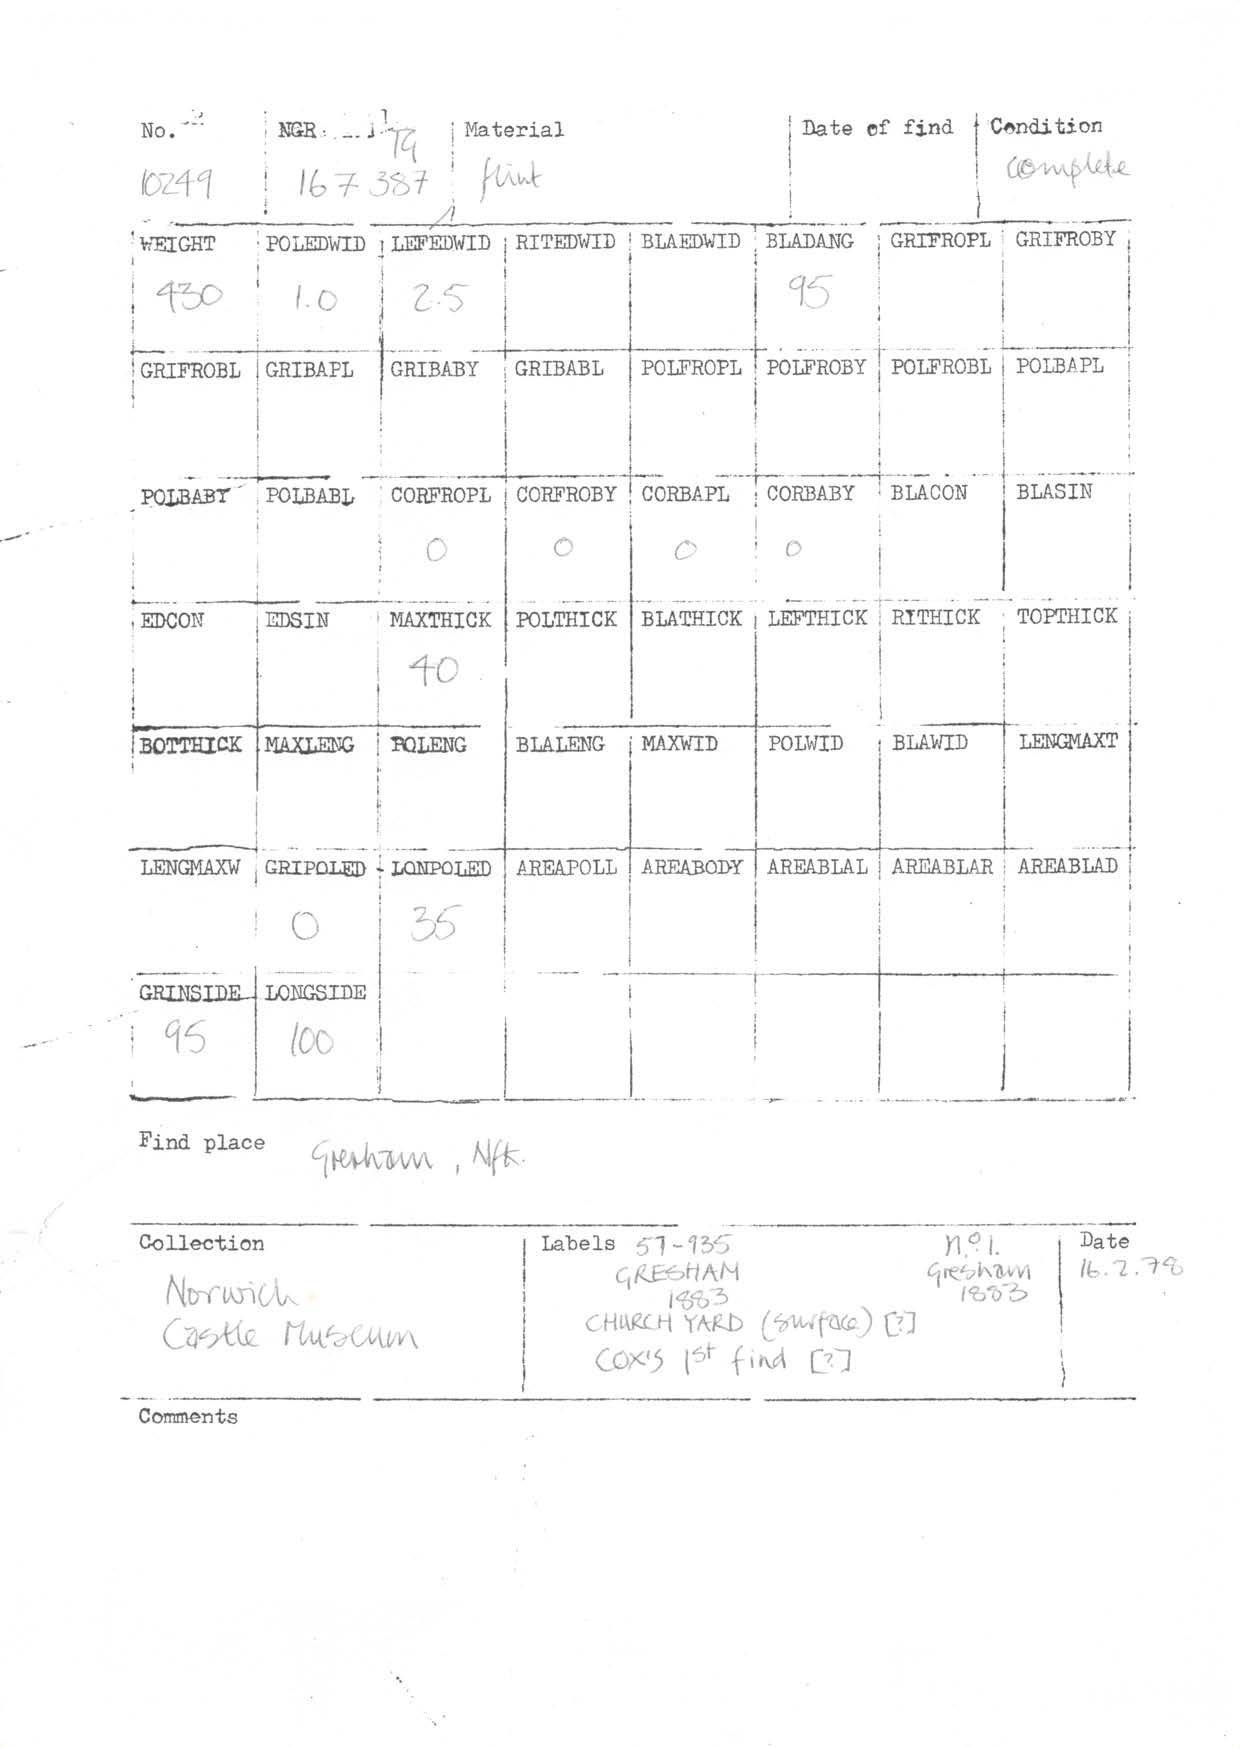 No. NGR Material Date of find Condition
TG
10249 167 387 flint complete
WEIGHT POLEDWID LEFEDWID RITEDWID BLAEDWID BLADANG GRIFROPL GRIFROBY
430 1.0 2.5 95
GRIFROBL GRIBAPL GRIBABY GRIBABL POLFROPL POLFROBY POLFROBL POLBAPL
POLBABY POLBABL CORFROPL CORFROBY CORBAPL CORBABY BLACON BLASIN
0 0 0 0
EDCON EDSIN MAXTHICK POLTHICK BLATHICK LEFTHICK RITHICK TOPTHICK
40
BOTTHICK MAXLENG POLENG BLALENG MAXWID POLWID BLAWID LENGMAXT
LENGMAXW GRIPOLED LONPOLED AREAPOLL AREABODY AREABLAL AREABLAR AREABLAD
0 35
GRINSIDE LONGSIDE
95 100
Find place Gresham, Nfk.
Collection
Norwich
Castle Museum
Labels 57-935
GRESHAM
1883
CHURCH YARD (surface) [?]
COX'S 1st find [?]
No 1.
Gresham
1883
Date
16.2.78
Comments